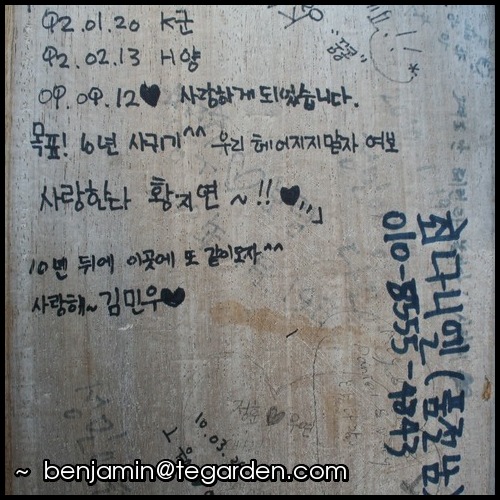 92.01.20 K군
92.02.13 H양
09.09.12♥ 사랑하게되었습니다.
목표! 10년 사귀기^^ 우리 헤어지지말자 여보
사랑한다 황지연 ~!!♥
10년 뒤에 이곳에 또 같이오자^^
사랑해~김민우♥
010-8555-4343
10.03.
~ benjamin@tegarden.com